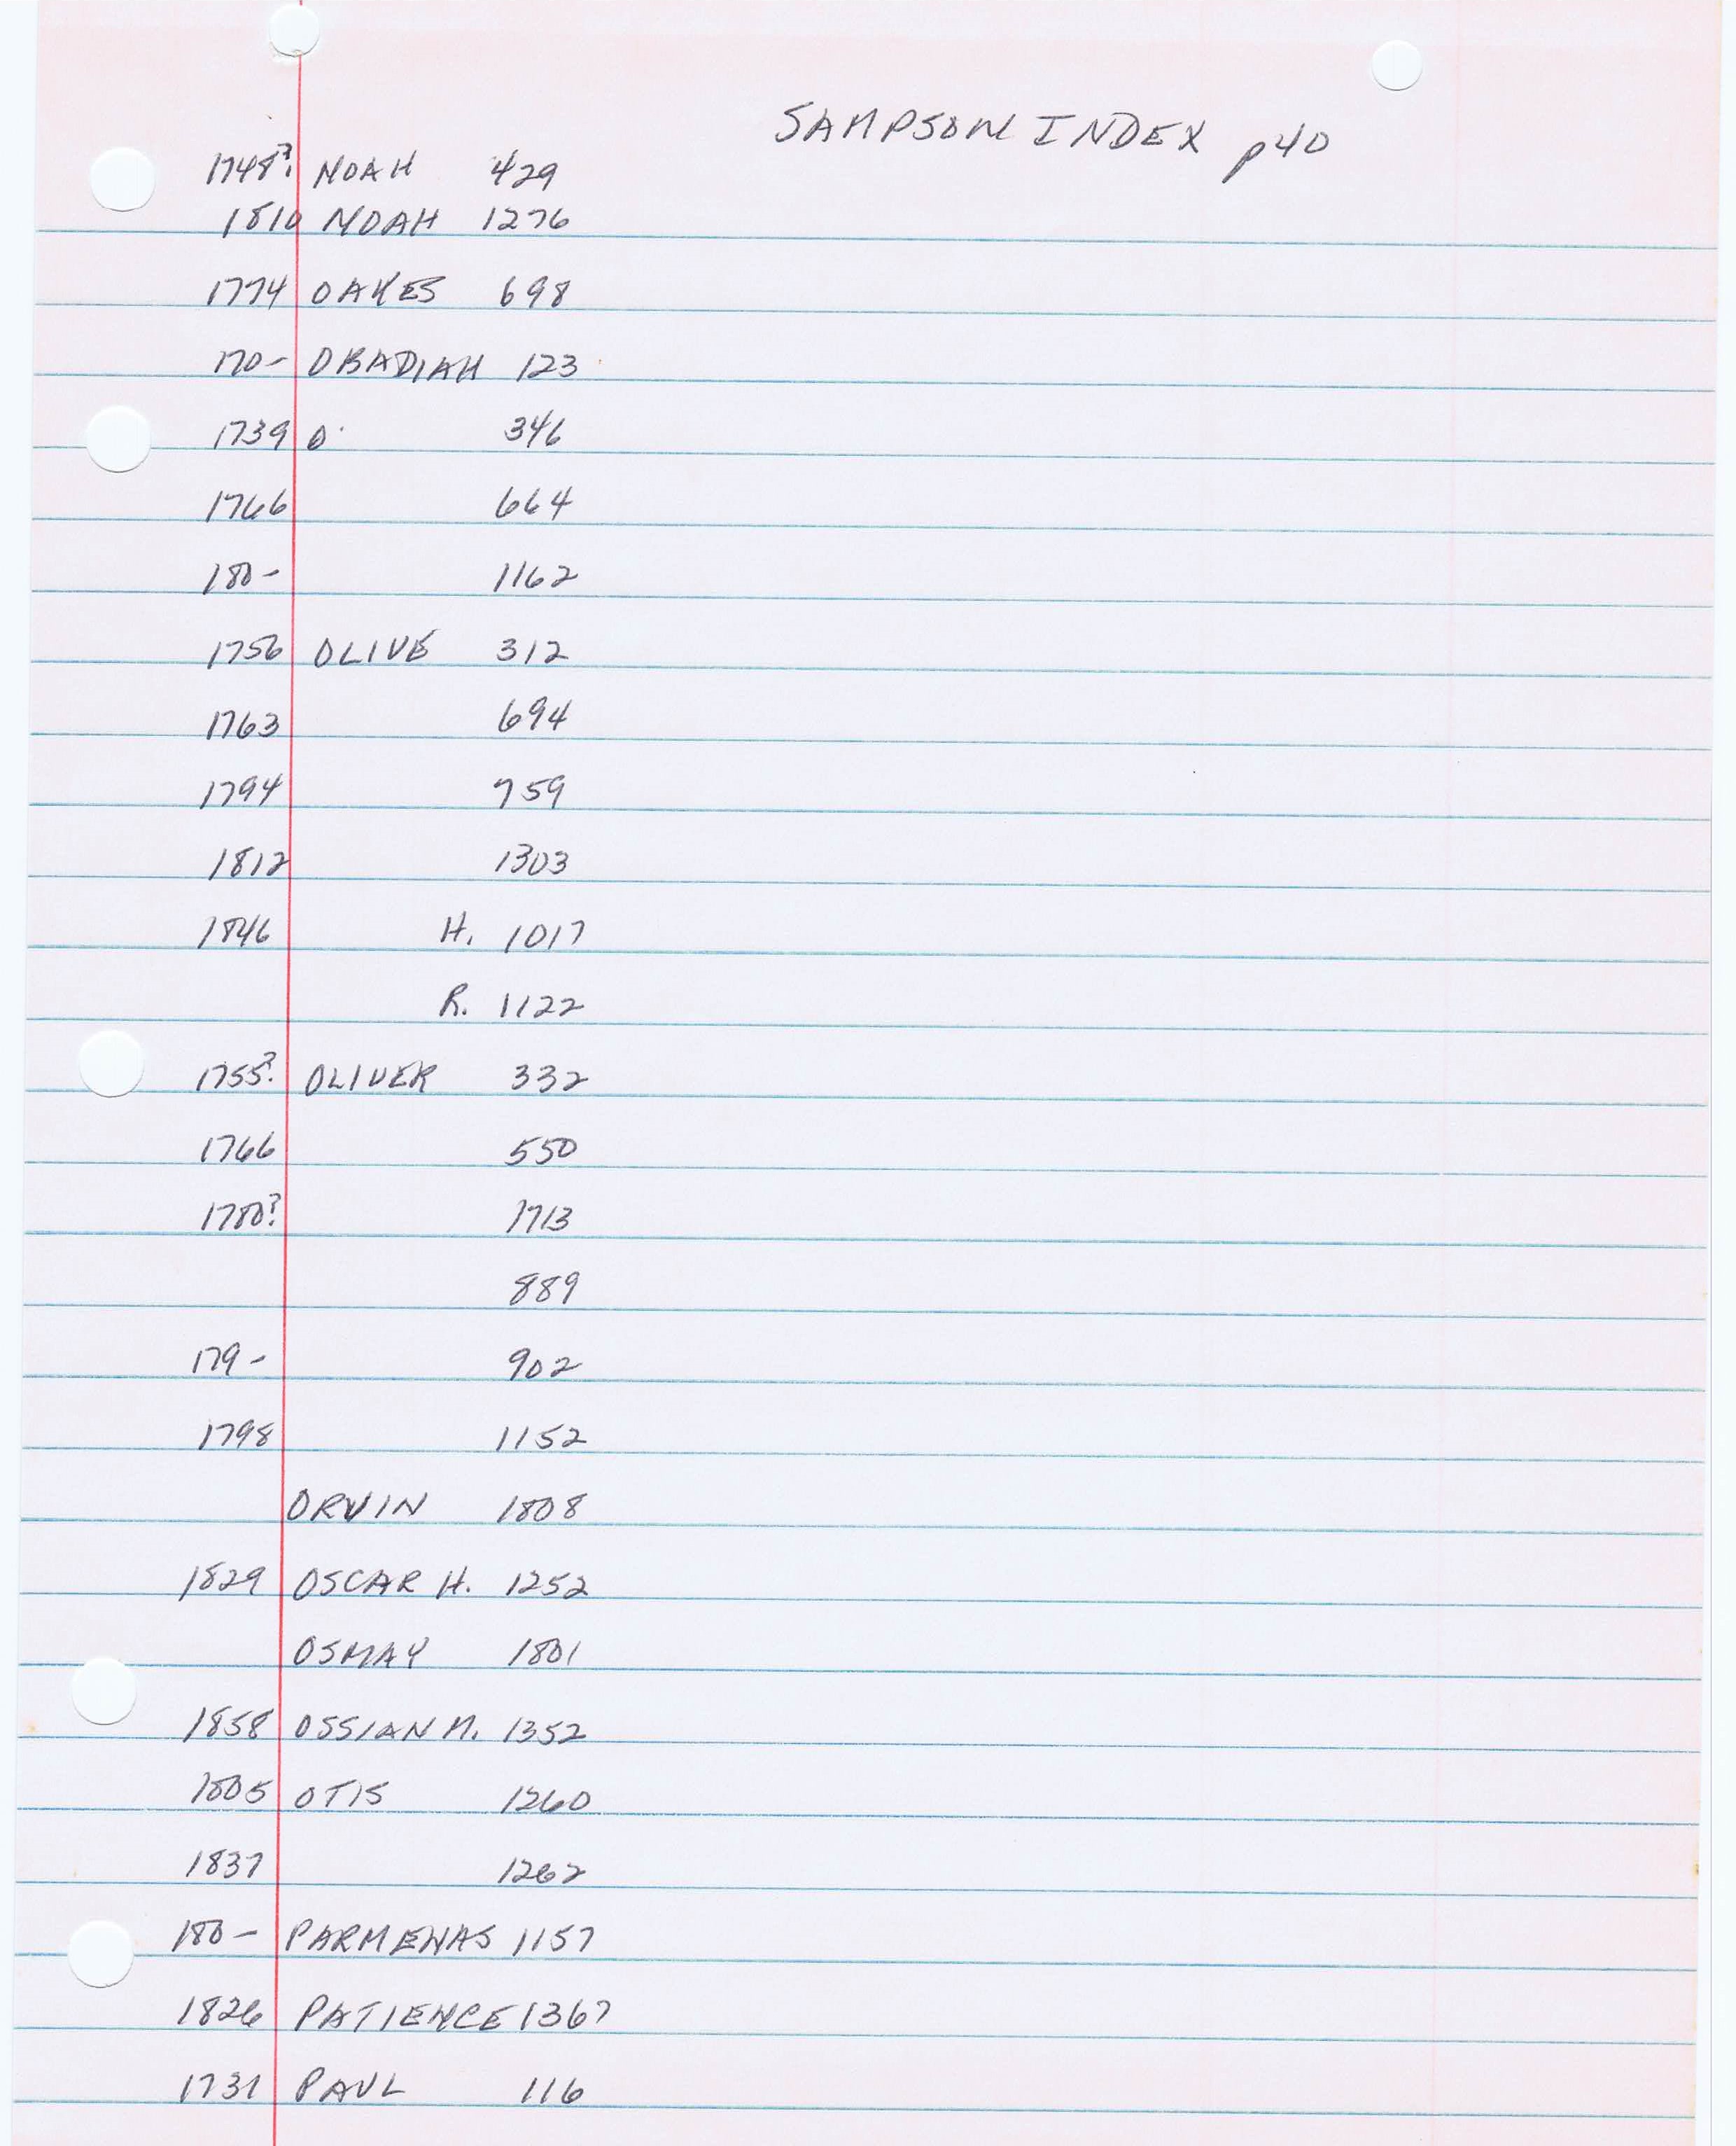 SAMPSON INDEX p40
1748? NOAH 429
1810 NOAH 1276
1774 OAKES 698
170- OBADIAH 123
1739 O 346
1766 664
180- 1162
1756 OLIVE 312
1763 694
1794 759
1812 1303
1846 H. 1017
R. 1122
1755? OLIVER 332
1766 550
1780? 1713
889
179- 902
1798 1152
ORVIN 1808
1829 OSCAR H. 1252
OSMAY 1801
1858 OSSIAN M. 1352
1805 OTIS 1260
1837 1262
180- PARMENAS 1157
1826 PATIENCE 1367
1731 PAUL 116